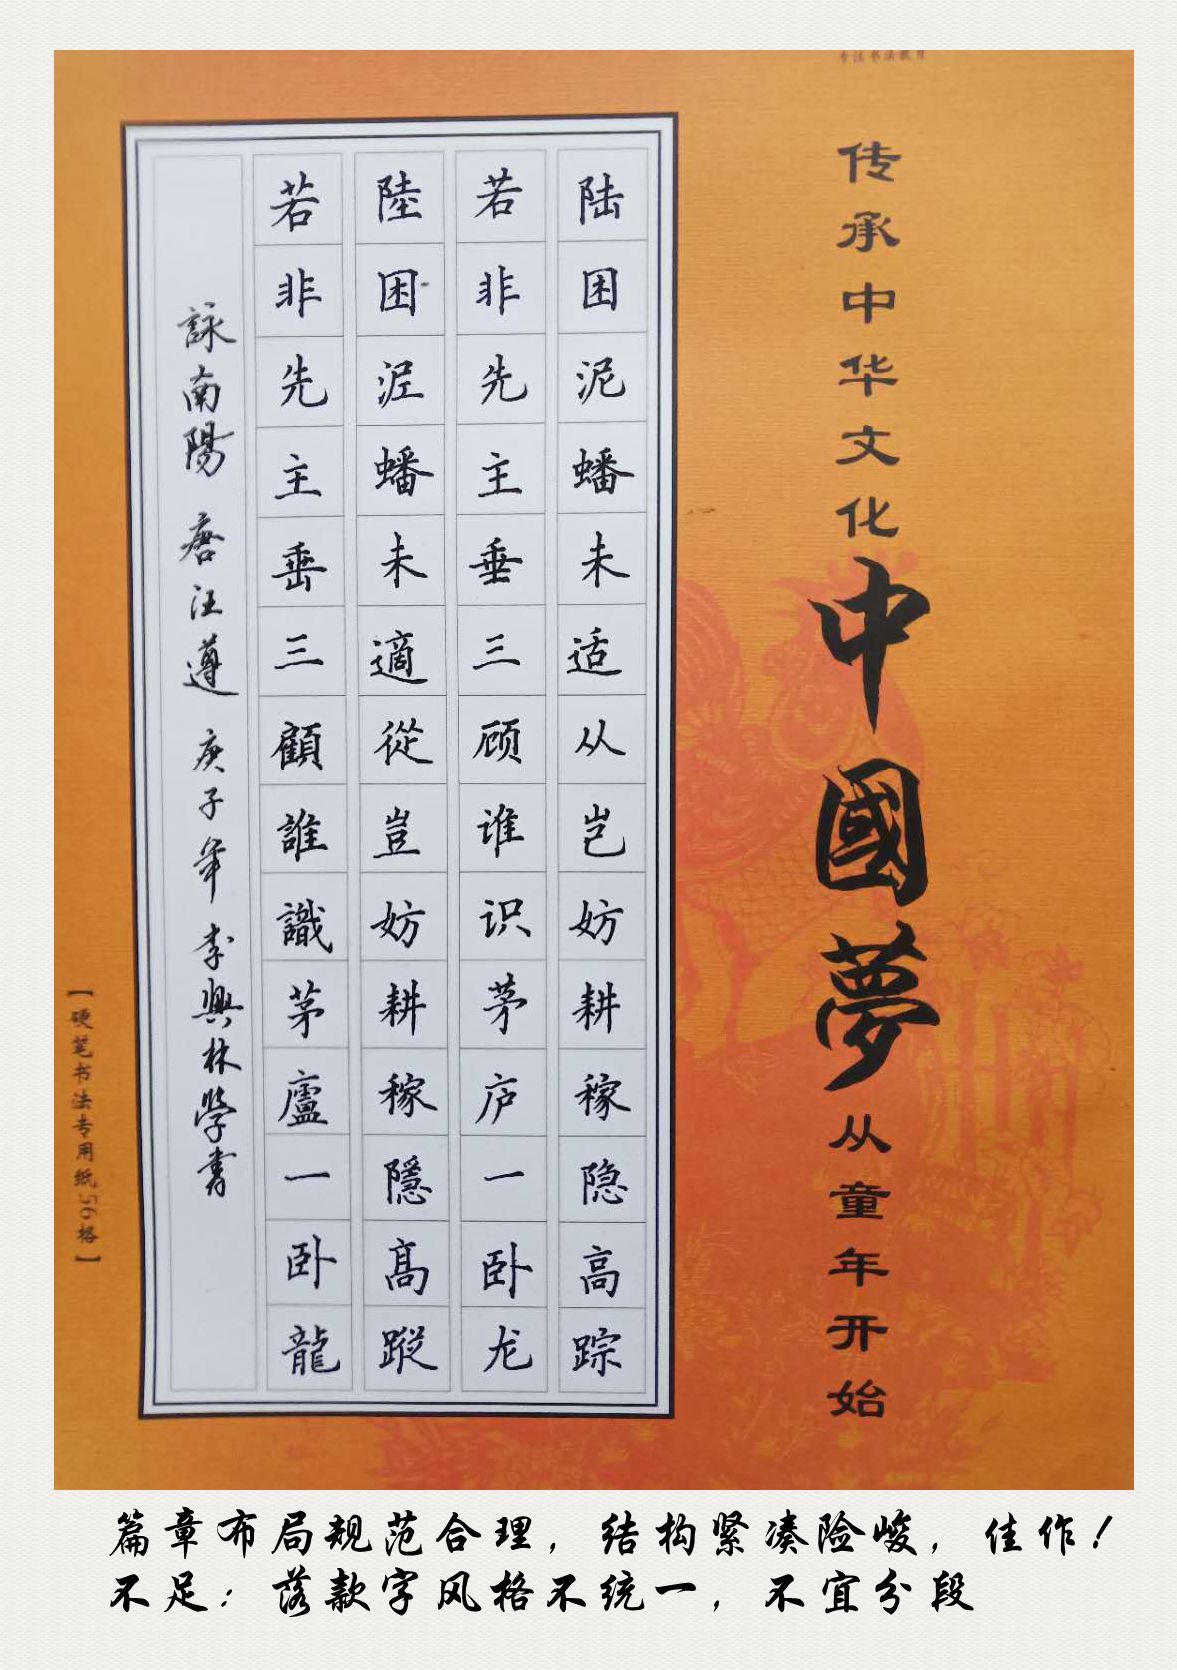 专注书法教育
传承中华文化
中國夢
从童年开始
陆困泥蟠未适从岂妨耕稼隐高踪
若非先主垂三顾谁识茅庐一卧龙
陸困泥蟠未適從豈妨耕稼隱高蹤
若非先主垂三顧誰識茅廬一卧龍
詠南陽 唐汪遵 庚子年 李興林學書
【硬笔书法专用纸56格】
篇章布局规范合理，结构紧凑险峻，佳作！
不足：落款字风格不统一，不宜分段